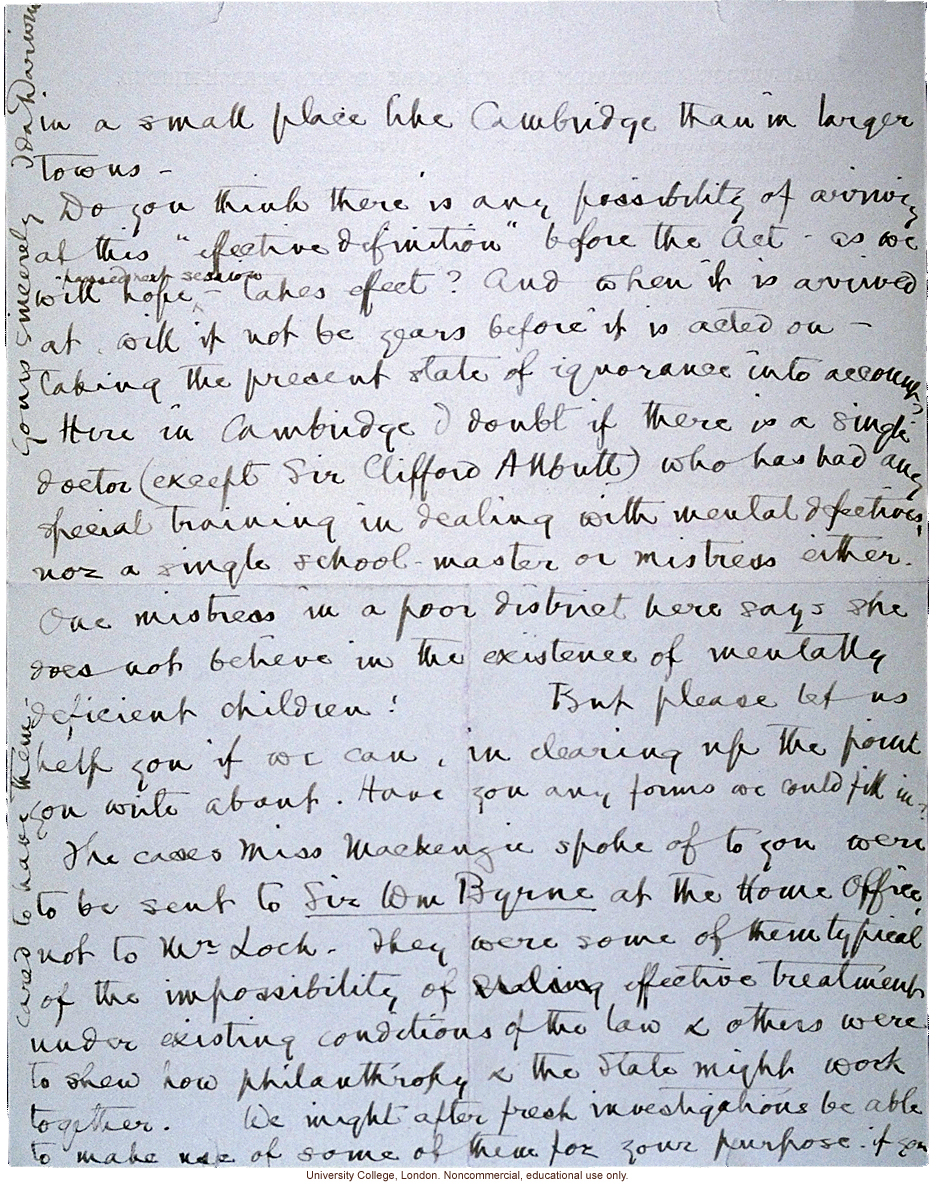 in a small place like Cambridge than in larger
towns -
Do you think there is any possibility of arriving
at this "effective definition" before the Act - as we
passed next session
will hope - takes effect? And when it is arrived
at, will it not be years before it is acted on -
taking the present state of ignorance into account?
Here in Cambridge I doubt if there is a single
doctor (except Sir Clifford Allbutt) who has had any
special training in dealing with mental defectives,
nor a single school-master or mistress either.
One mistress in a poor district here says she
does not believe in the existence of mentally
deficient children! But please let us
help you if we can, in clearing up the point
you write about. Have you any forms we could fill in?
The cases Miss Mackenzie spoke of to you were
to be sent to Sir Wm Byrne at the Home Office,
not to Mr Loch. They were some of them typical
of the impossibility of effective treatment
under existing conditions of the law & others were
to shew how philanthropy & the State might work
together. We might after fresh investigations be able
to make use of some of them for your purpose if you
cared to have them.
Yours sincerely Ida Darwin
University College, London. Noncommercial, educational use only.